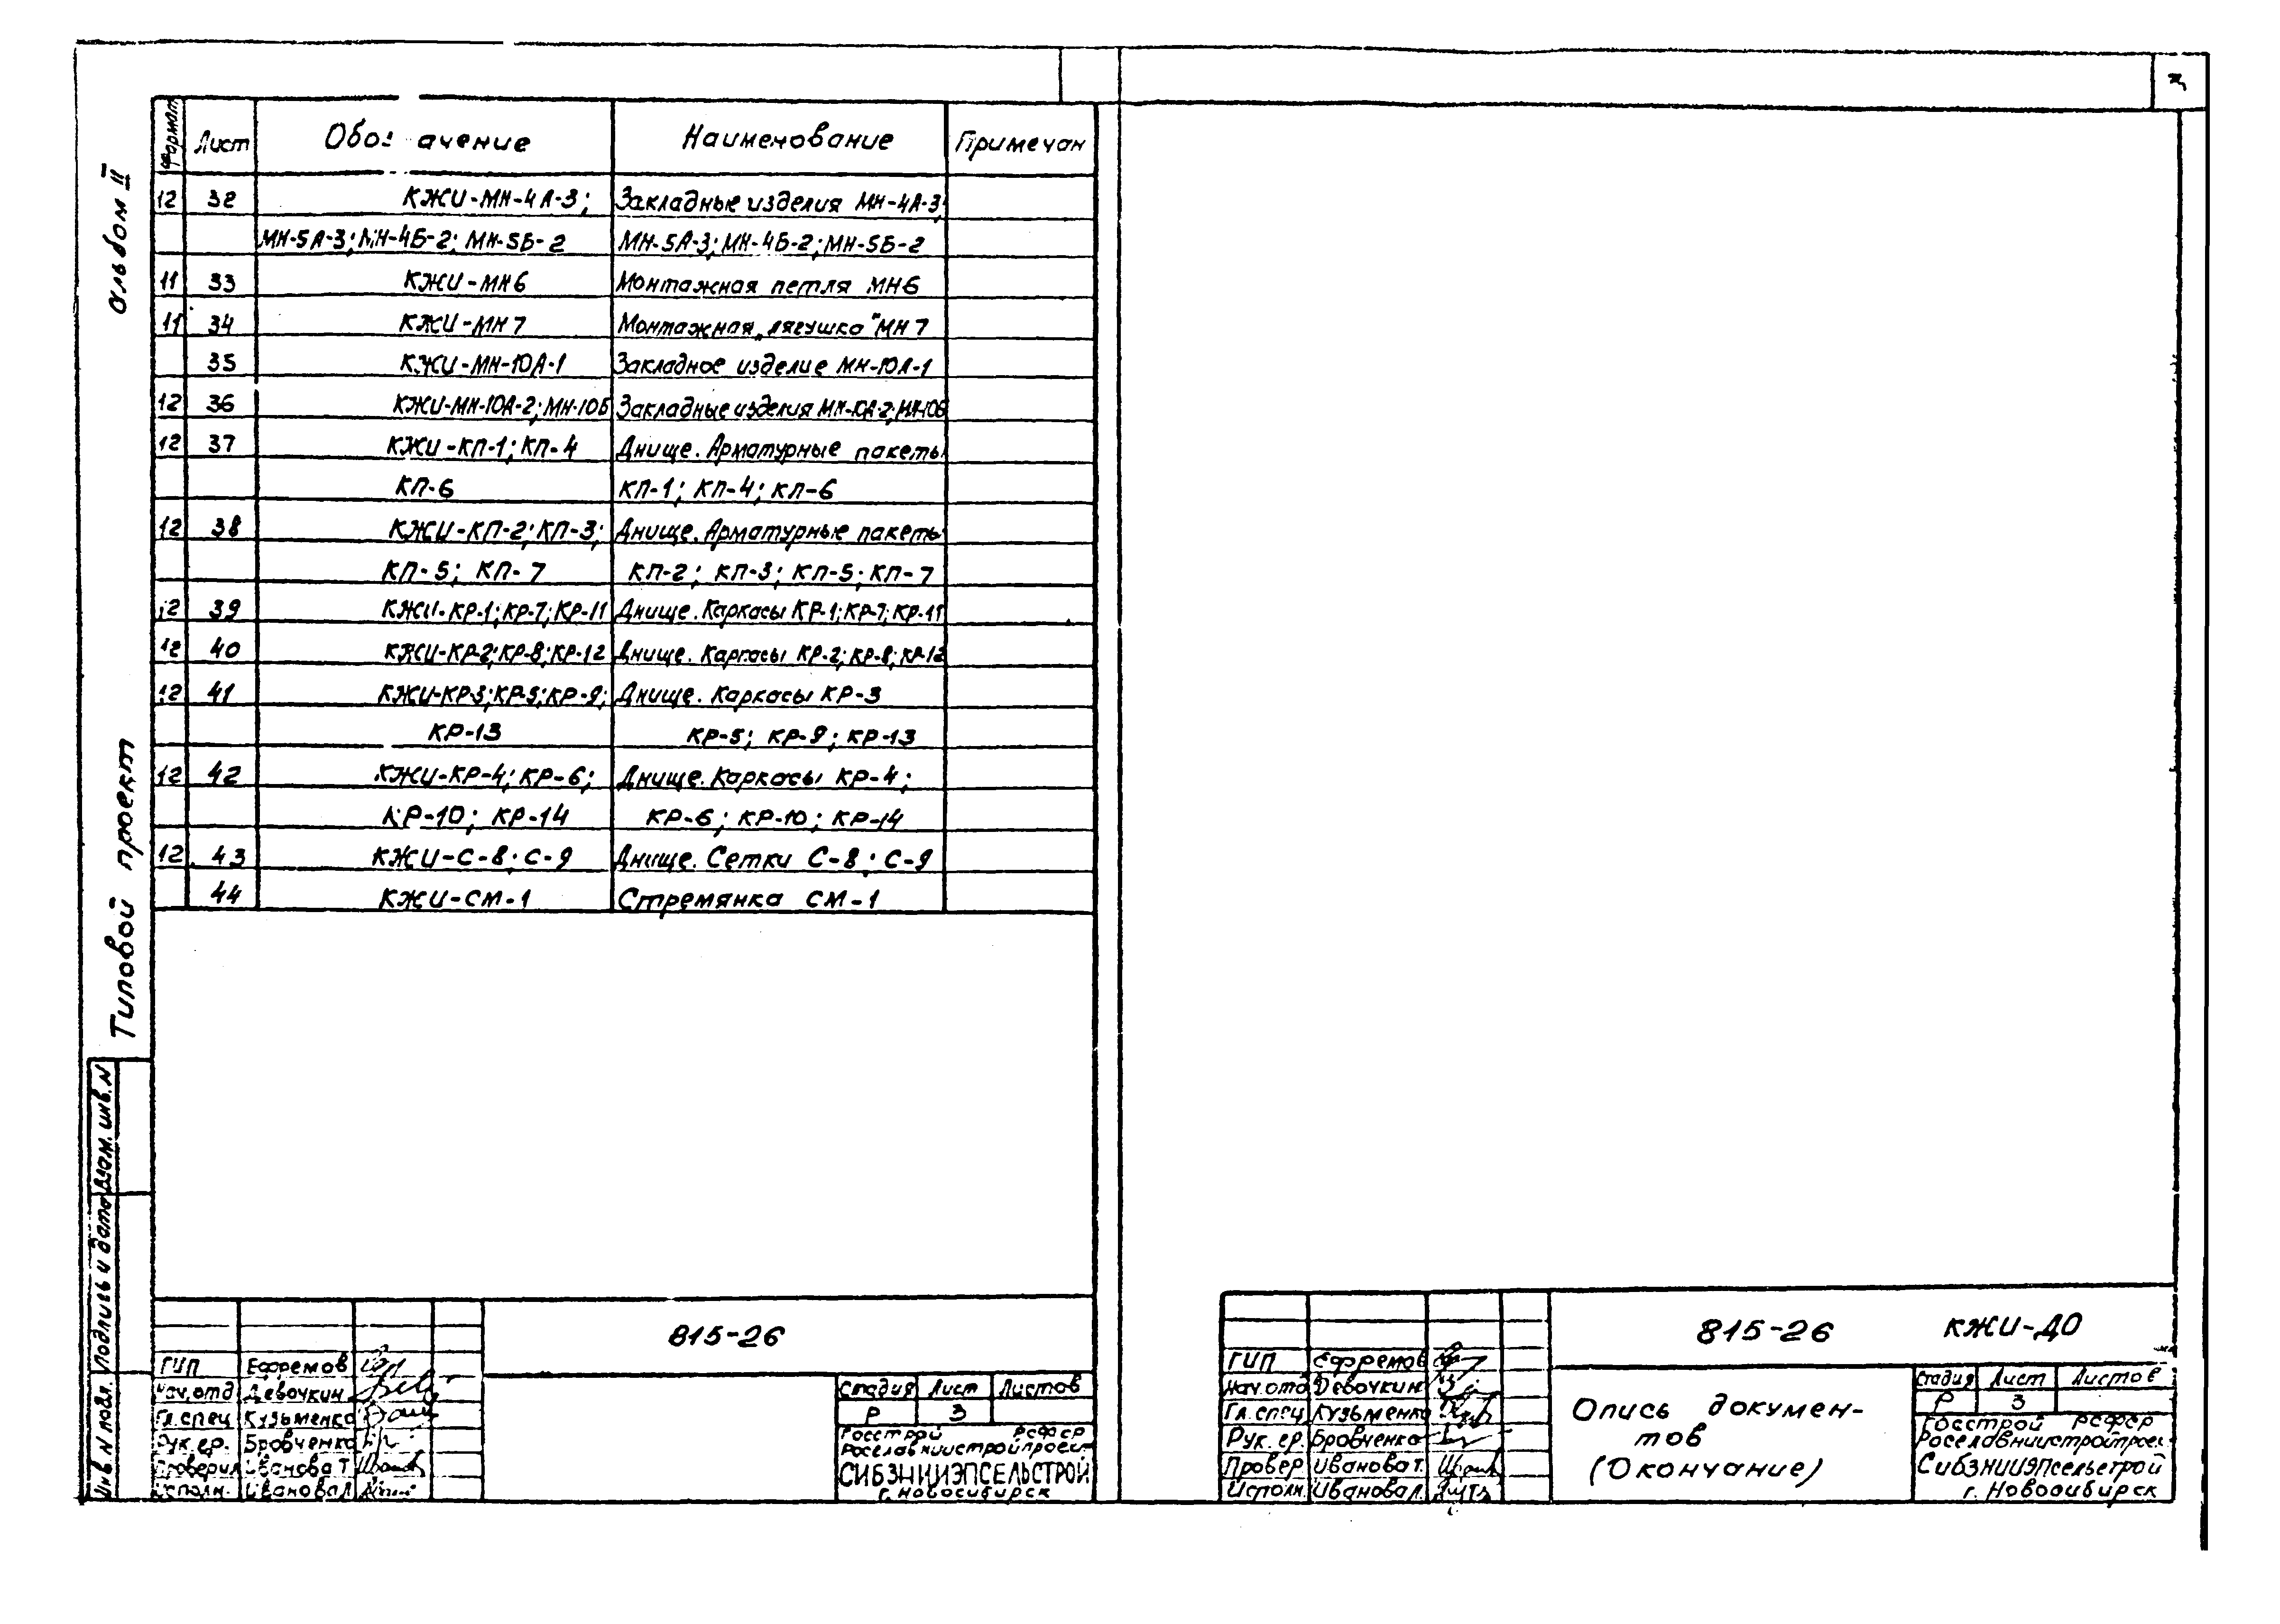 Альбом II
Типовой проект
Взам. инв. N
Подпись и дата
Инв. N подл.
Формат Лист Обозначение Наименование Примечан
12 32 КЖИ-МН-4А-3; Закладные изделия МН-4А-3;
МН-5А-3; МН-4Б-2; МН-5Б-2 МН-5А-3; МН-4Б-2; МН-5Б-2
11 33 КЖИ-МН6 Монтажная петля МН6
11 34 КЖИ-МН7 Монтажная „лягушка" МН7
35 КЖИ-МН-10А-1 Закладное изделие МН-10А-1
12 36 КЖИ-МН-10А-2; МН-10Б Закладные изделия МН-10А-2; МН-10Б
12 37 КЖИ-КП-1; КП-4 Днище. Арматурные пакеты
КП-6 КП-1; КП-4; КП-6
12 38 КЖИ-КП-2; КП-3; Днище. Арматурные пакеты
КП-5; КП-7 КП-2; КП-3; КП-5; КП-7
12 39 КЖИ-КР-1; КР-7; КР-11 Днище. Каркасы КР-1; КР-7; КР-11
12 40 КЖИ-КР-2; КР-8; КР-12 Днище. Каркасы КР-2; КР-8; КР-12
12 41 КЖИ-КР-3; КР-5; КР-9; Днище. Каркасы КР-3
КР-13 КР-5; КР-9; КР-13
12 42 КЖИ-КР-4; КР-6; Днище. Каркасы КР-4;
КР-10; КР-14 КР-6; КР-10; КР-14
12 43 КЖИ-С-8; С-9 Днище. Сетки С-8; С-9
44 КЖИ-СМ-1 Стремянка СМ-1
815-26
ГИП Ефремов
Нач.отд Девочкин
Гл.спец Кузьменко
Рук.гр. Бровченко
Проверил Иванова Т.
Исполн. Иванова Л.
Стадия Лист Листов
Р 3
Госстрой РСФСР
Росглавниистройпроект
СИБЗНИИЭПСЕЛЬСТРОЙ
г. Новосибирск
815-26 КЖИ-ДО
ГИП Ефремов
Нач.отд Девочкин
Гл.спец Кузьменко
Рук.гр. Бровченко
Провер Иванова Т.
Исполн. Иванова Л.
Опись докумен-
тов
(Окончание)
Стадия Лист Листов
Р 3
Госстрой РСФСР
Росглавниистройпроект
СибЗНИИЭПсельстрой
г. Новосибирск